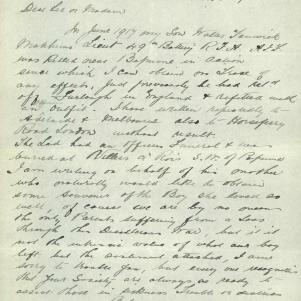 Dear Sir or Madam
In June 1917 my Son Walter Fenwick
Lieut 49th Battery A.F.A. A.I.F.
was killed near Bapaume in action
since which I can obtain no Trace of
any effects, Just previously he had
off Furlough in England & refitted with
an Outfit. I have written repeatedly to
Adelaide & Melbourne also to Horseferry
Road London without result.
The Lad had an Officers Funeral & was
buried at S.W. of Bapaume
I am writing on behalf of his mother
who naturally would like to obtain
some Souvenir of the Boy she loved so
well, of course we are by no means
the only Parents suffering from a Loss
through this War, but it is
not the intrinsic value of what our boy
left but the sentiment attached, I am
sorry to trouble you, but every one recognises
that your Society are always so ready to
assist those in